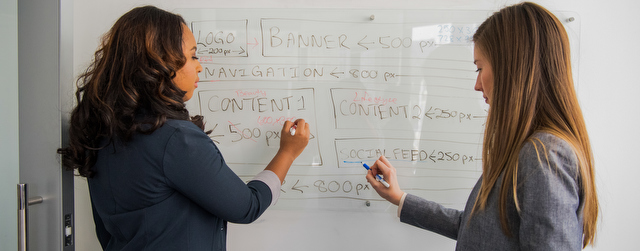 LOGO
200px
BANNER ← 500 px
NAVIGATION ← 800 px
CONTENT 1
← 500 px
CONTENT 2 ← 250 px
SOCIAL FEED ← 250 px
← 800 px